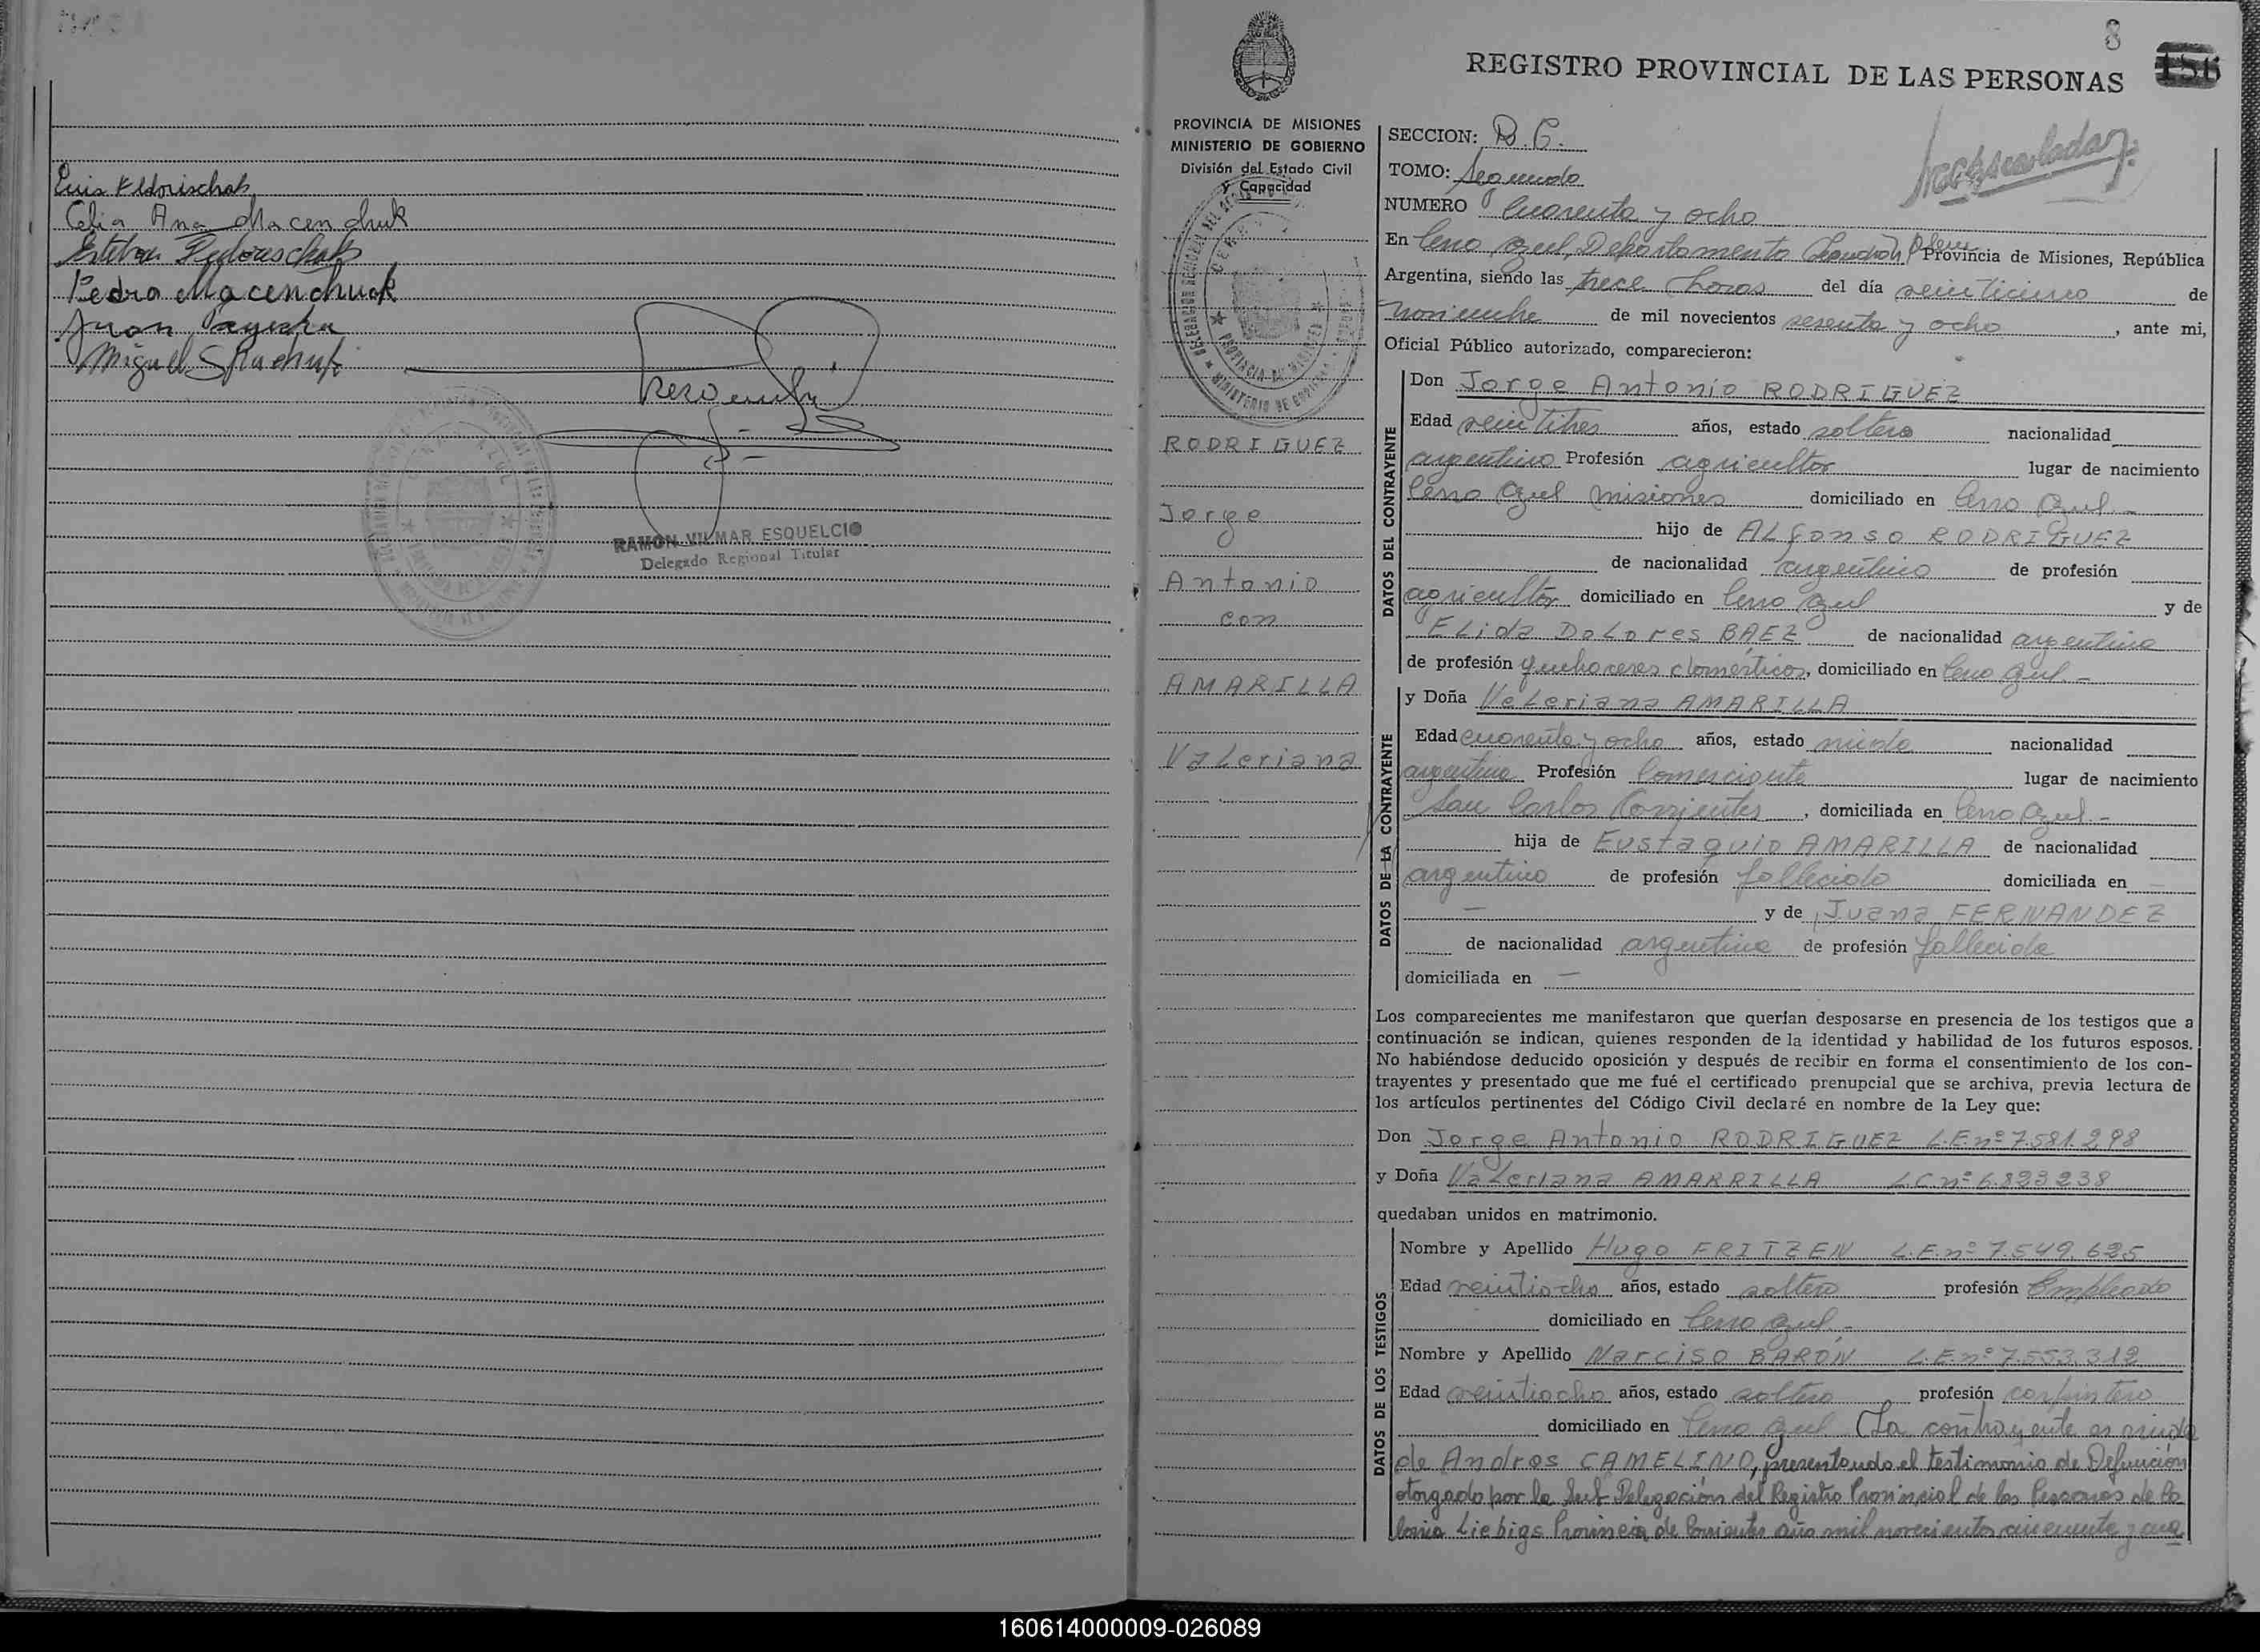 Celia Ana Macenchuk
Pedro Macenchuk
Juan
Miguel
RAMON VILMAR ESQUELCIO
Delegado Regional Titular
8
REGISTRO PROVINCIAL DE LAS PERSONAS
PROVINCIA DE MISIONES
MINISTERIO DE GOBIERNO
División del Estado Civil
y Capacidad
RODRIGUEZ
Jorge
Antonio
con
AMARILLA
Valeriana
SECCION:
TOMO: Segundo
NUMERO Cuarenta y ocho
En Cerro Azul, Departamento Leandro N. Alem Provincia de Misiones, República
Argentina, siendo las trece horas del día veinticinco de
noviembre de mil novecientos sesenta y ocho, ante mi,
Oficial Público autorizado, comparecieron:
DATOS DEL CONTRAYENTE
Don Jorge Antonio RODRIGUEZ
Edad veintitres años, estado soltero nacionalidad
argentino Profesión agricultor lugar de nacimiento
Cerro Azul Misiones domiciliado en Cerro Azul.-
hijo de ALfonso RODRIGUEZ
de nacionalidad argentino de profesión
agricultor domiciliado en Cerro Azul y de
ELida DoLores BÁEZ de nacionalidad argentina
de profesión quehaceres domésticos, domiciliado en Cerro Azul.-
DATOS DE LA CONTRAYENTE
y Doña VaLeriana AMARILLA
Edad cuarenta y ocho años, estado viuda nacionalidad
argentina Profesión Comerciante lugar de nacimiento
San Carlos Corrientes, domiciliada en Cerro Azul.-
hija de Eustaquio AMARILLA de nacionalidad
argentino de profesión fallecido domiciliada en -
- y de Juana FERNANDEZ
de nacionalidad argentina de profesión fallecida
domiciliada en -
Los comparecientes me manifestaron que querían desposarse en presencia de los testigos que a
continuación se indican, quienes responden de la identidad y habilidad de los futuros esposos.
No habiéndose deducido oposición y después de recibir en forma el consentimiento de los con-
trayentes y presentado que me fué el certificado prenupcial que se archiva, previa lectura de
los artículos pertinentes del Código Civil declaré en nombre de la Ley que:
Don Jorge Antonio RODRIGUEZ L.E.nº 7.581.298
y Doña VaLeriana AMARRILLA L.C nº 6.823238
quedaban unidos en matrimonio.
DATOS DE LOS TESTIGOS
Nombre y Apellido Hugo FRITZEN L.E.nº 7.549.625
Edad veintiocho años, estado soltero profesión Empleado
domiciliado en Cerro Azul.-
Nombre y Apellido Narciso BARON L.E.nº 7.553.312
Edad veintiocho años, estado soltero profesión carpintero
domiciliado en Cerro Azul (La contrayente es viuda
de Andres CAMELINO, presentando el testimonio de Defunción
otorgado por la Sub-Delegación del Registro Provincial de las Personas de Co
lonia Liebigs Provincia de Corrientes año mil novecientos cincuenta y cua
160614000009-026089